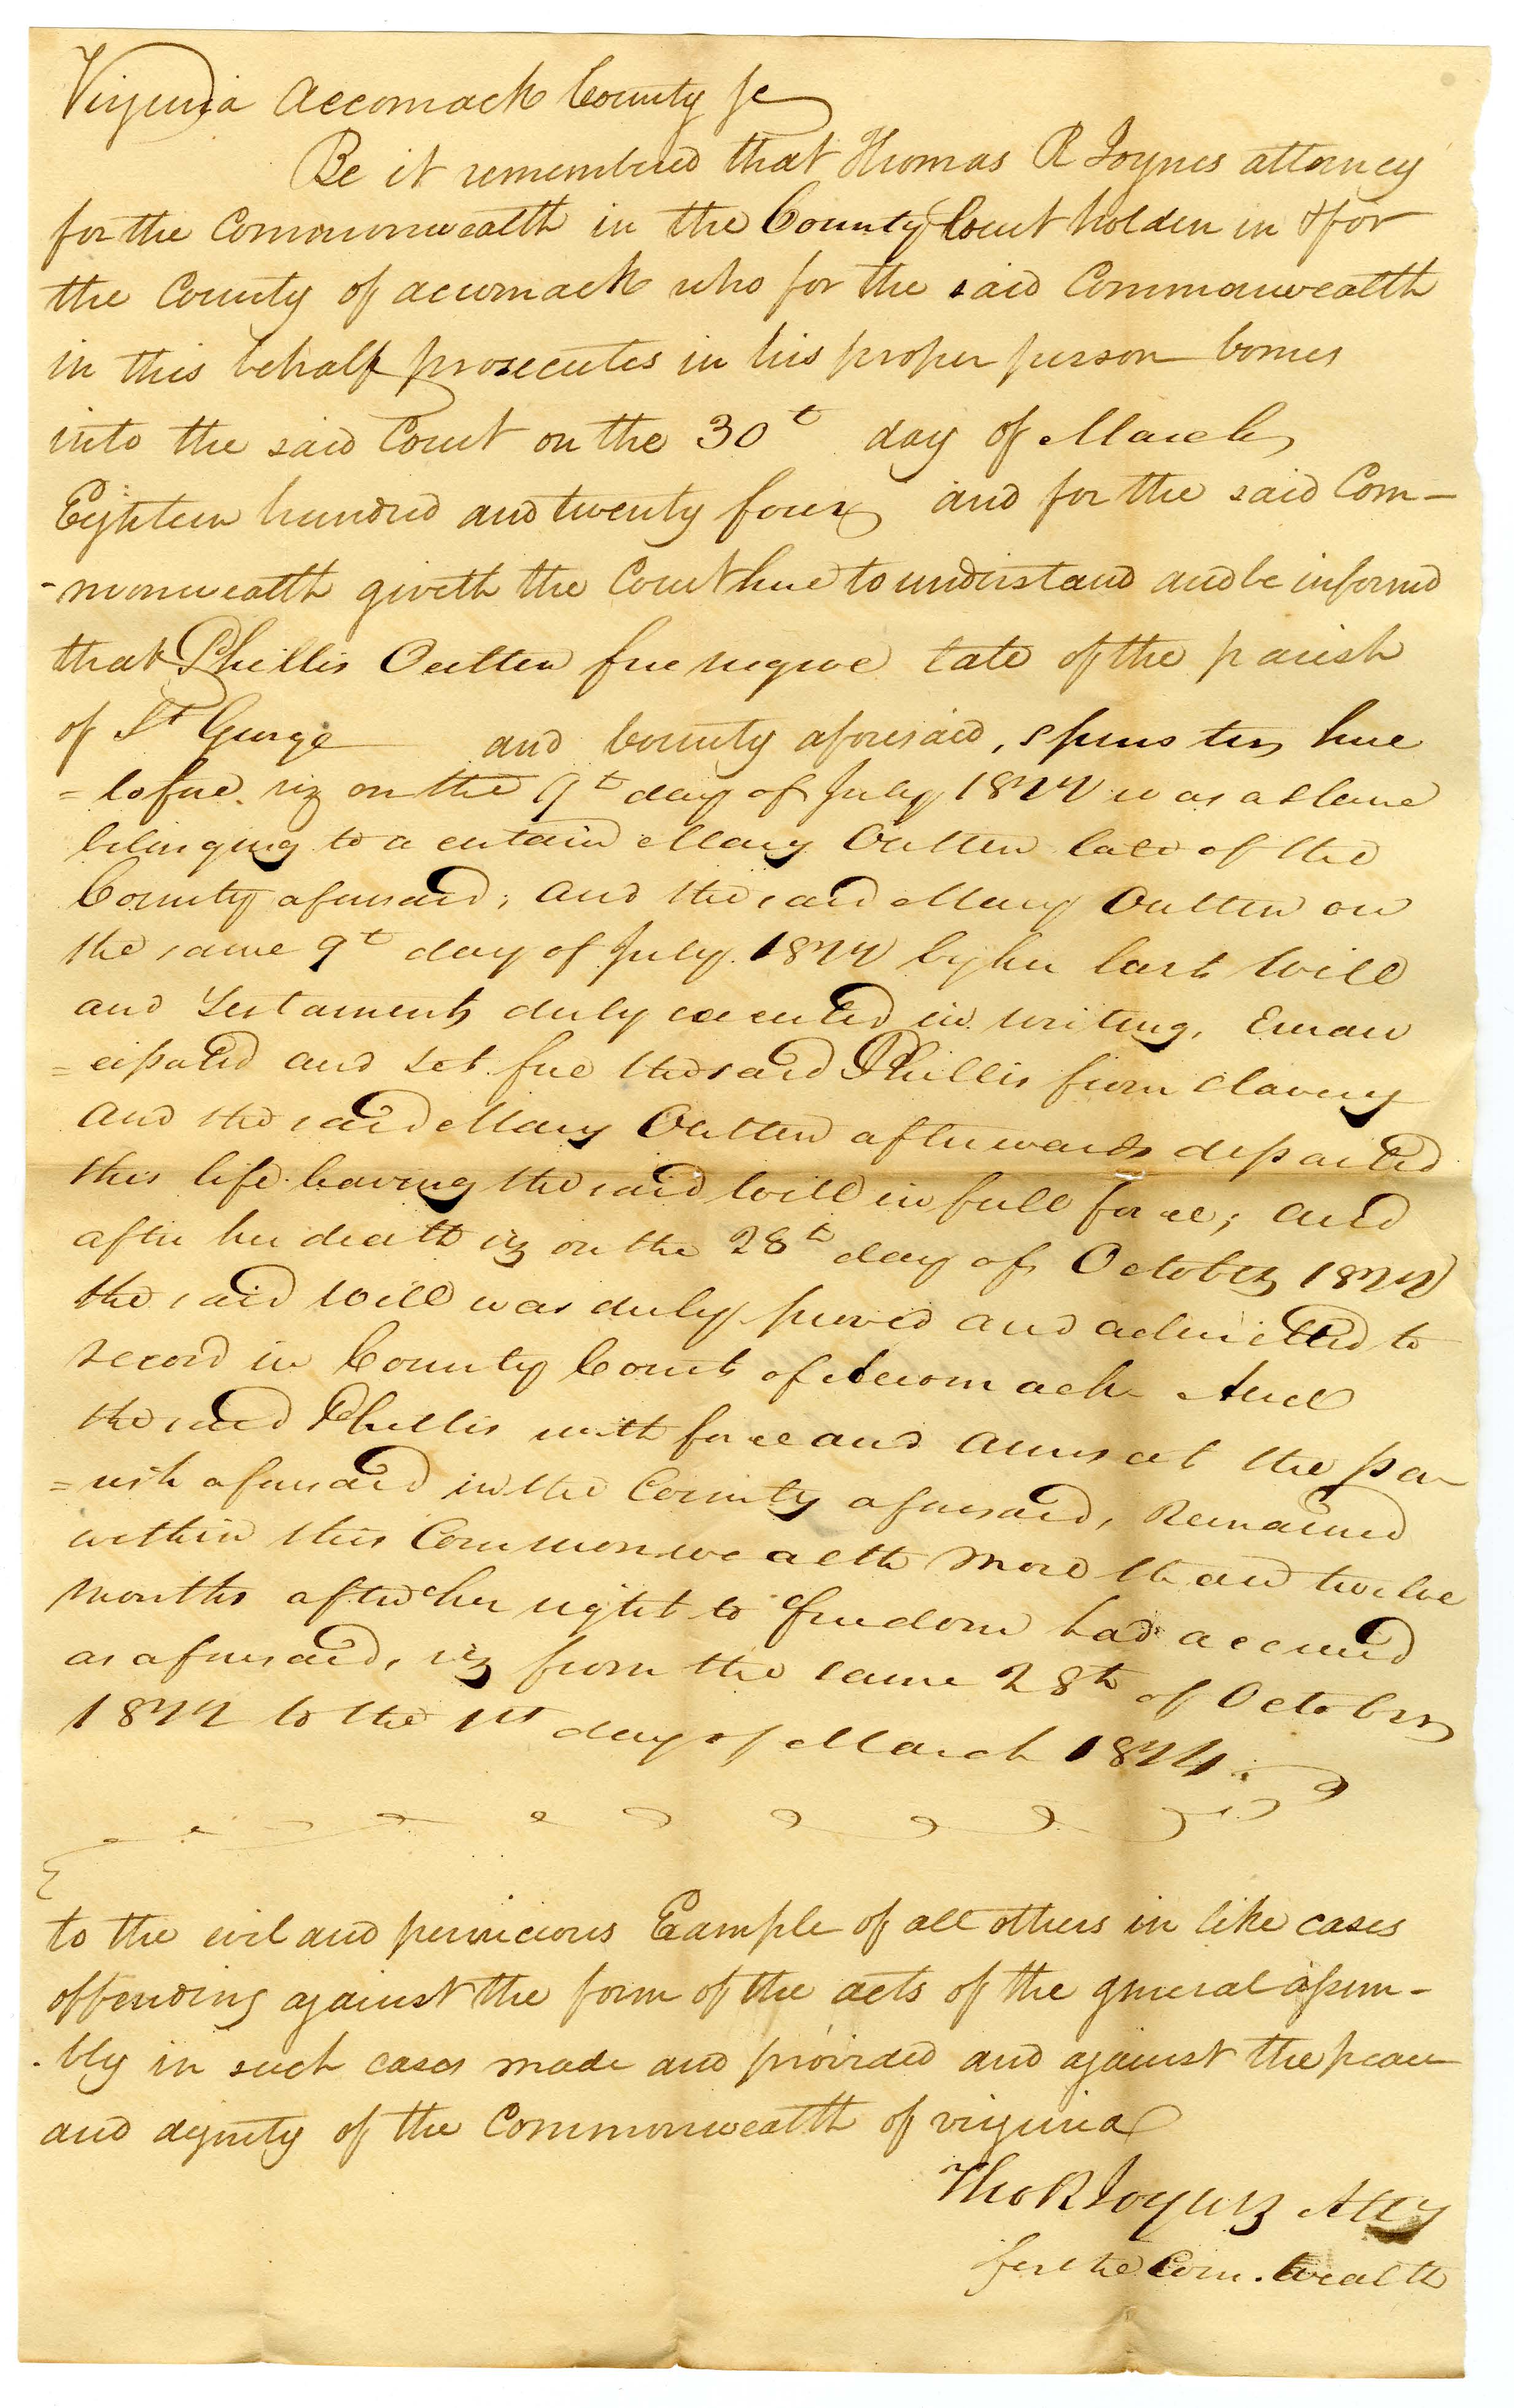 Virginia Accomack County Sc
Be it remembered that Thomas R Joynes attorney
for the Commonwealth in the County Court holden in & for
the County of accomack who for the said Commonwealth
in this behalf prosecutes in his proper person comes
into the said Court on the 30t day of March
Eighteen hundred and twenty four and for the said Com-
-monwealth giveth the Court here to understand and be informed
that Phillis Outten free negroe late of the parish
of St George and County aforesaid, spinster here
=tofore. viz on the 9th day of July 1822 was a slave
belonging to a certain Mary Outten late of the
County aforesaid; and the said Mary Outten on
the same 9t day of July 1822 by her last Will
and Testament duly executed in writing, Eman
=cipated and set free the said Phillis from slavery
and the said Mary Outten afterwards departed
this life leaving the said Will in full force; and
after her death viz on the 28th day of October 1822
the said Will was duly proved and admitted to
record in County Court of Accomack And
the said Phillis with force and arms at the pa
=rish aforesaid in the County aforesaid, Remained
within this Commonwealth more than twelve
months after her right to freedom had accrued
as aforesaid, viz from the same 28th of October
1822 to the 1st day of March 1824.
to the evil and pernicious Example of all others in like cases
offending against the form of the acts of the general assem-
-bly in such cases made and provided and against the peace
and dignity of the Commonwealth of virginia
Tho R Joynes Atty
for the Com. wealth